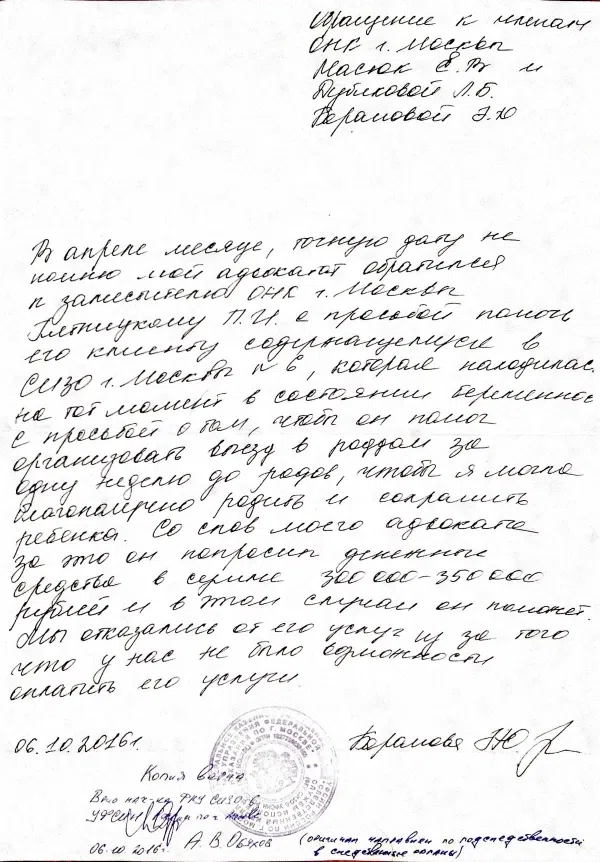 Обращение к членам
ОНК г. Москвы
Масюк Е.В и
Дубиковой Л.Б.
Борамовой Э.Ю
В апреле месяце, точную дату не
помню мой адвокат обратился
к заместителю ОНК г. Москвы
Пятницкому П.И. с просьбой помочь
его клиенту содержащемуся в
СИЗО г. Москвы №6, которая находилась
на тот момент в состоянии беременнос
с просьбой о том, чтобы он помог
организовать выезд в роддом за
одну неделю до родов, чтобы я могла
благополучно родить и сохранить
ребенка. Со слов моего адвоката
за это он попросил денежные
средства в сумме 300 000-350 000
рублей и в этом случаи он поможет.
Мы отказались от его услуг из за того
что у нас не было возможности
оплатить его услуги.
06.10.2016г. Борамова Э.Ю.
Копия верна
Врио нач-ка ФКУ СИЗО-6
УФСИН
06.10 2016г. А.В. Обухов
(оригинал направлен по подследственности
в следственные органы)